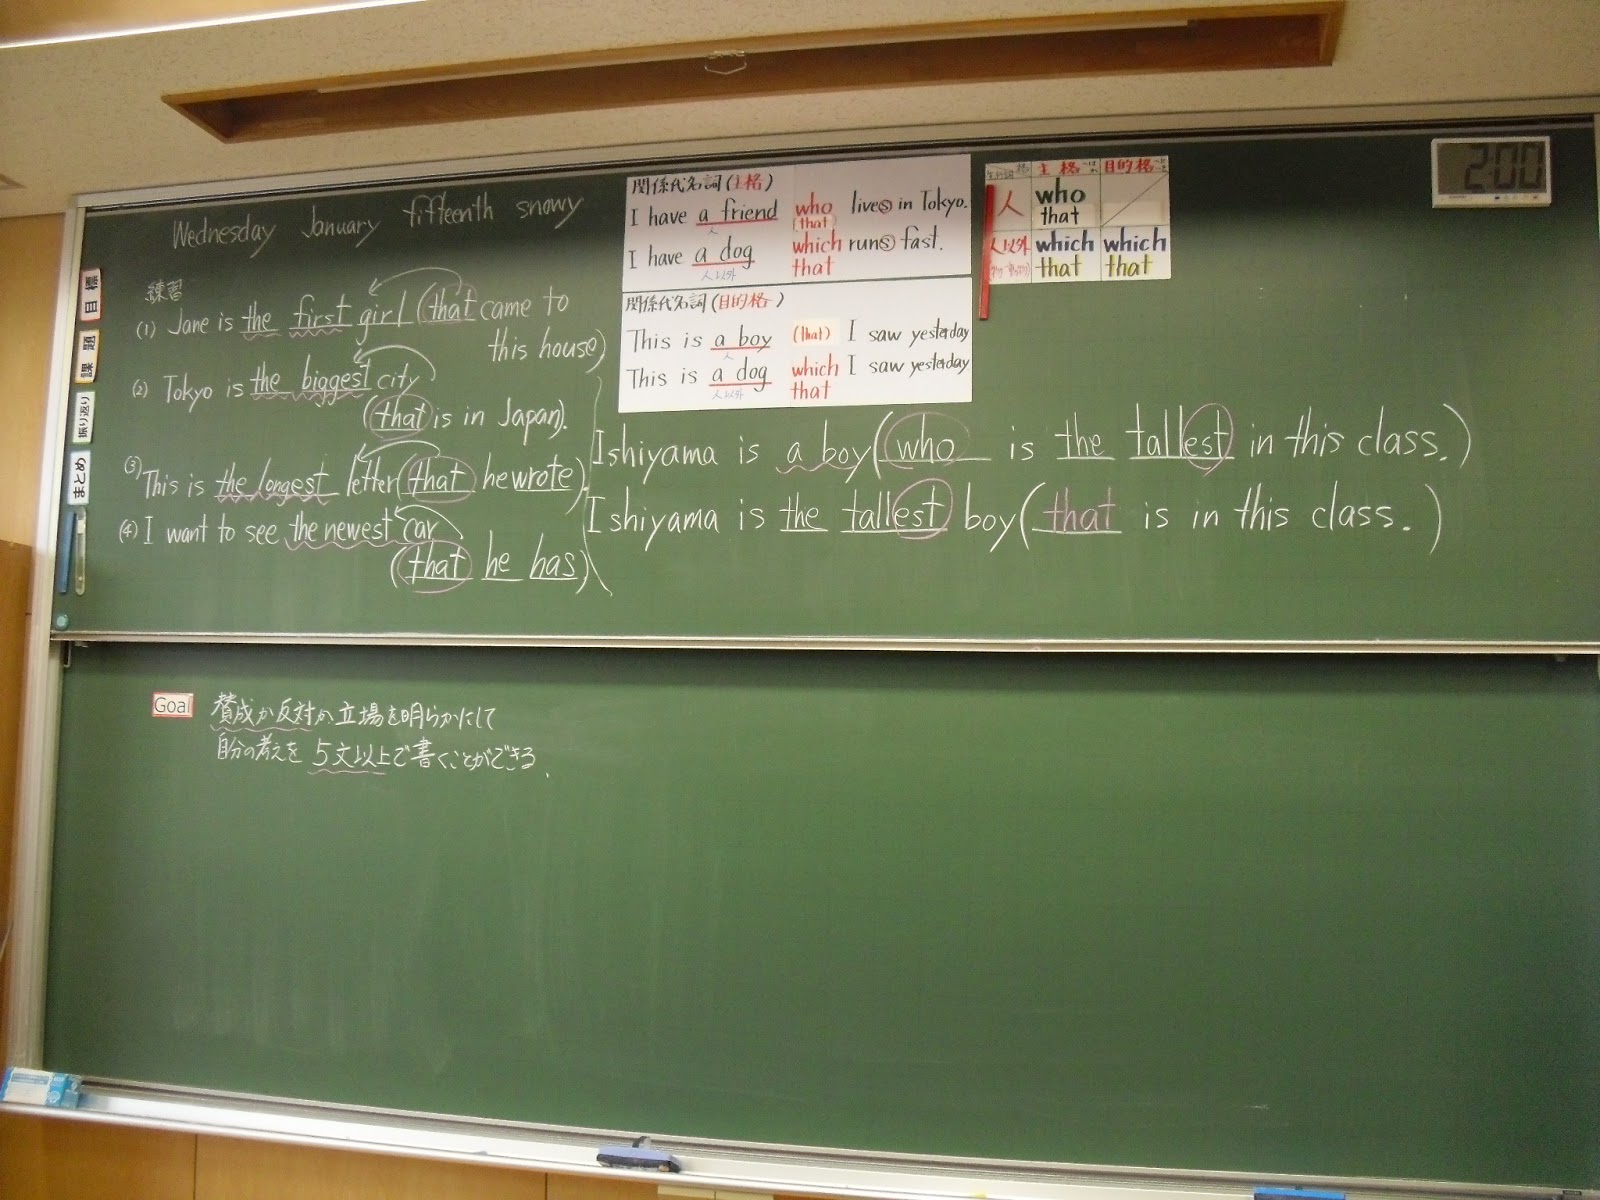 Wednesday January fifteenth snowy
目標
課題
振り返り
まとめ
練習
(1) Jane is the first girl (that came to
this house)
(2) Tokyo is the biggest city
(that is in Japan).
(3) This is the longest letter (that he wrote).
(4) I want to see the newest car
(that he has).
関係代名詞(主格)
I have a friend who lives in Tokyo.
人 (that)
I have a dog which runs fast.
人以外 that
関係代名詞(目的格)
This is a boy (that) I saw yesterday
人
This is a dog which I saw yesterday
人以外 that
格 主格 目的格
人 who
that
人以外 which which
that that
2:00
Ishiyama is a boy (who is the tallest in this class.)
Ishiyama is the tallest boy (that is in this class.)
Goal 賛成か反対か立場を明らかにして
自分の考えを5文以上で書くことができる、